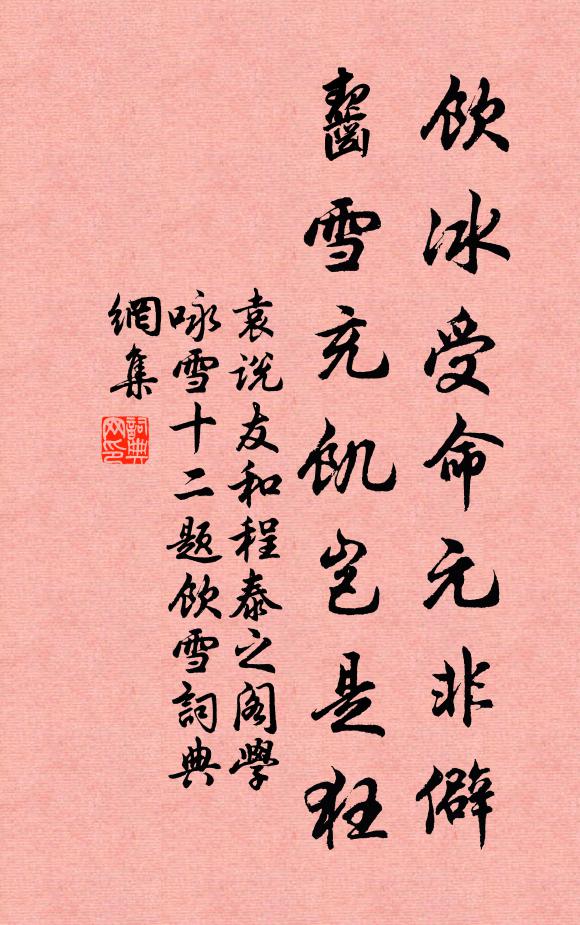 飲冰受命元非僻
齧雪充飢豈是狂
袁説友和程泰之閣學
咏雪十二題飲雪詞典
網集
詞典網印